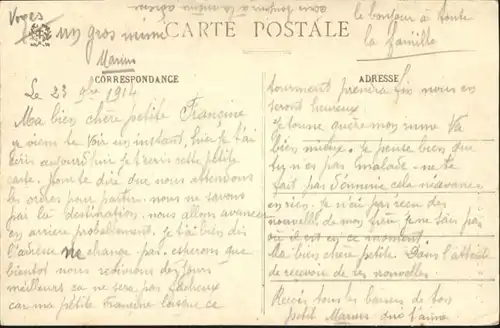 Voges
un gros mimi
Marius
CARTE POSTALE
le bonjour à toute
la famille
CORRESPONDANCE
ADRESSE
Le 23 9bre 1914
Ma bien chère petite Francine
je viens te voir un instant, hier je t'ai
écris aujourd'hui je t'écris cette petite
carte. Pour te dire que nous attendons
les ordres pour partir. nous ne savons
pas la destination. nous allons avance
en arriere probablement. je t'ai bien dis
l'adresse ne change pas. esperons que
bientot nous redirons des jours
meilleurs ca ne sera pas facheux
car ma petite Francine lorsque ce
tourment prendra fin nous en
seront heureux
je tousse guère mon rume va
bien mieux. Je pense bien que
tu n'es pas malade. ne te
fait pas d'ennuie cela n'avance
en rien. Je n'ai pas recu des
nouvelle de mon frère je ne sais pas
où il est en ce moment
Ma bien chère petite. Dans l'attente
de recevoir de tes nouvelles
Recois tous les baisers de ton
petit Marius qui t'aime